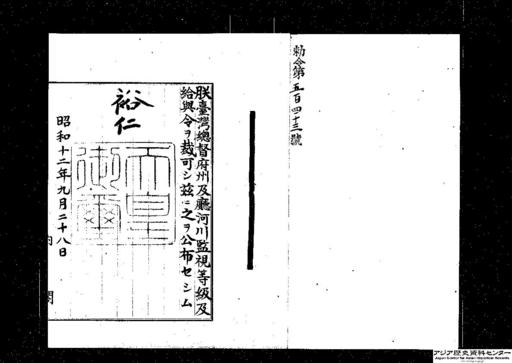 勅令第五百四十三號
朕臺灣總督府州及廳河川監視等級及
給與令ヲ裁可シ茲ニ之ヲ公布セシム
裕仁
天皇
御璽
昭和十二年九月二十八日
内閣
アジア歴史資料センター
Japan Center for Asian Historical Records